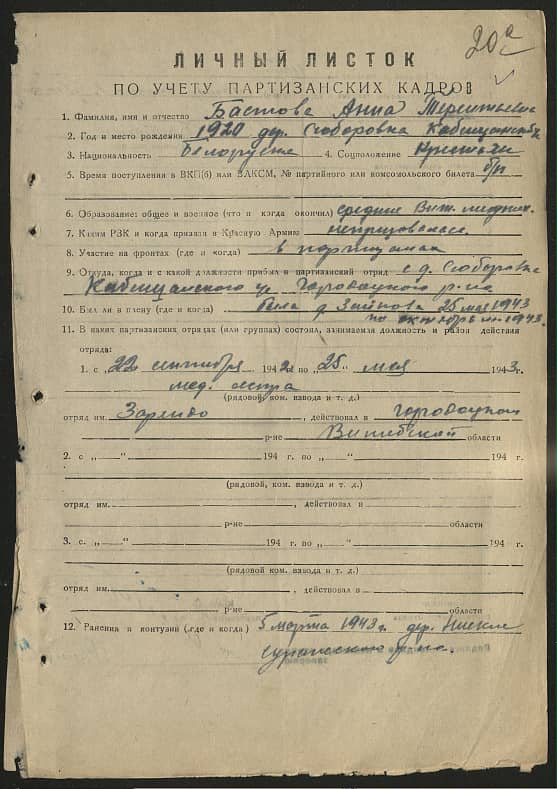 ЛИЧНЫЙ ЛИСТОК
ПО УЧЕТУ ПАРТИЗАНСКИХ КАДРОВ
1. Фамилия, имя и отчество Бастова Анна Терентьевна
2. Год и место рождения 1920 дер. Слоборовка
3. Национальность Белоруска 4. Соцположение
5. Время поступления в ВКП(б) или ВЛКСМ, № партийного или комсомольского билета б/п
6. Образование: общее и военное (что и когда окончил) среднее Вит.
7. Каким РВК и когда призван в Красную Армию
8. Участие на фронтах (где и когда) в партизанах
9. Откуда, когда и с какой должности прибыл в партизанский отряд с д. Слоборовка
Городоцкого р-на
10. Был ли в плену (где и когда) была д. 25 мая 1943
по октябрь м. 1943.
11. В каких партизанских отрядах (или группах) состоял, занимаемая должность и район действия
отряда:
1. с „22“ сентября 1942 по „25“ мая 1943 г.
мед. сестра
(рядовой, ком. взвода и т. д.)
отряд им. , действовал в Городоцком
р-не Витебской области
2. с „—“ 194 г. по „—“ 194 г.
(рядовой, ком. взвода и т. д.)
отряд им. , действовал в
р-не области
3. с. „—“ 194 г. по „—“ 194 г.
(рядовой, ком. взвода и т. д.)
отряд им. , действовал в
р-не области
12. Ранения и контузии (где и когда) 5 марта 1943 г. дер.
Суражского р-на